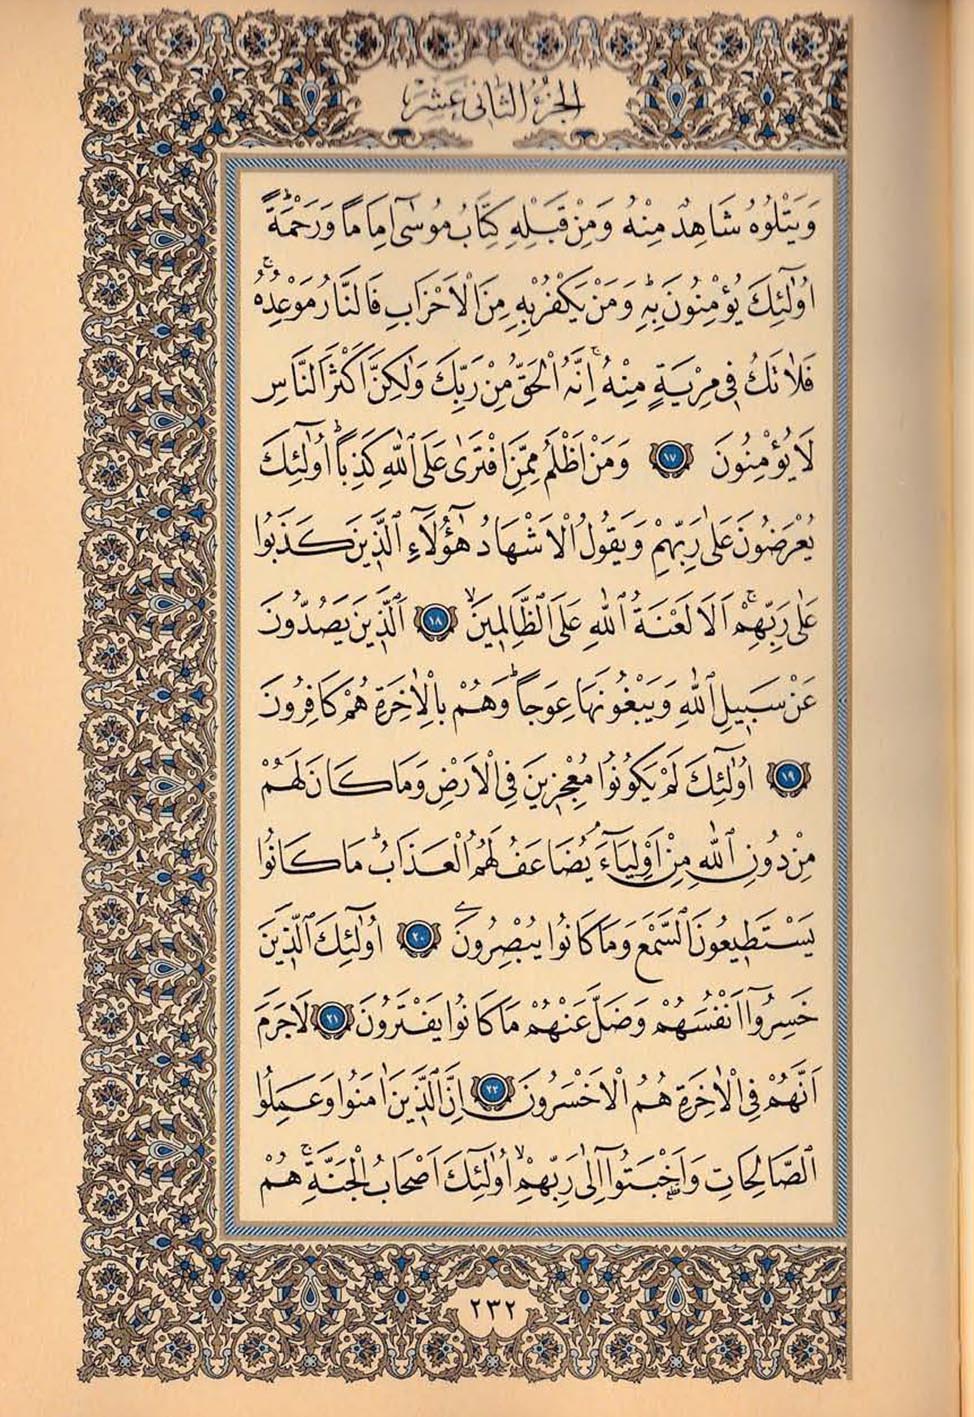 الجزء الثانى عشر
وَيَتْلُوهُ شَاهِدٌ مِنْهُ وَمِنْ قَبْلِهِ كِتَابُ مُوسٰٓى اِمَامًا وَرَحْمَةًۜ
اُو۬لٰٓئِكَ يُؤْمِنُونَ بِه۪ۜ وَمَنْ يَكْفُرْ بِه۪ مِنَ الْاَحْزَابِ فَالنَّارُ مَوْعِدُهُۚ
فَلَا تَكُ ف۪ي مِرْيَةٍ مِنْهُۚ اِنَّهُ الْحَقُّ مِنْ رَبِّكَ وَلٰكِنَّ اَكْثَرَ النَّاسِ
لَا يُؤْمِنُونَ ﴿١٧﴾ وَمَنْ اَظْلَمُ مِمَّنِ افْتَرٰى عَلَى اللّٰهِ كَذِبًاۜ اُو۬لٰٓئِكَ
يُعْرَضُونَ عَلٰى رَبِّهِمْ وَيَقُولُ الْاَشْهَادُ هٰٓؤُ۬لَٓاءِ الَّذ۪ينَ كَذَبُوا
عَلٰى رَبِّهِمْۚ اَلَا لَعْنَةُ اللّٰهِ عَلَى الظَّالِم۪ينَۙ ﴿١٨﴾ اَلَّذ۪ينَ يَصُدُّونَ
عَنْ سَب۪يلِ اللّٰهِ وَيَبْغُونَهَا عِوَجًاۜ وَهُمْ بِالْاٰخِرَةِ هُمْ كَافِرُونَ
﴿١٩﴾ اُو۬لٰٓئِكَ لَمْ يَكُونُوا مُعْجِز۪ينَ فِي الْاَرْضِ وَمَا كَانَ لَهُمْ
مِنْ دُونِ اللّٰهِ مِنْ اَوْلِيَٓاءَۢ يُضَاعَفُ لَهُمُ الْعَذَابُۜ مَا كَانُوا
يَسْتَط۪يعُونَ السَّمْعَ وَمَا كَانُوا يُبْصِرُونَ ﴿٢٠﴾ اُو۬لٰٓئِكَ الَّذ۪ينَ
خَسِرُٓوا اَنْفُسَهُمْ وَضَلَّ عَنْهُمْ مَا كَانُوا يَفْتَرُونَ ﴿٢١﴾ لَا جَرَمَ
اَنَّهُمْ فِي الْاٰخِرَةِ هُمُ الْاَخْسَرُونَ ﴿٢٢﴾ اِنَّ الَّذ۪ينَ اٰمَنُوا وَعَمِلُوا
الصَّالِحَاتِ وَاَخْبَتُٓوا اِلٰى رَبِّهِمْۙ اُو۬لٰٓئِكَ اَصْحَابُ الْجَنَّةِۚ هُمْ
٢٣٢